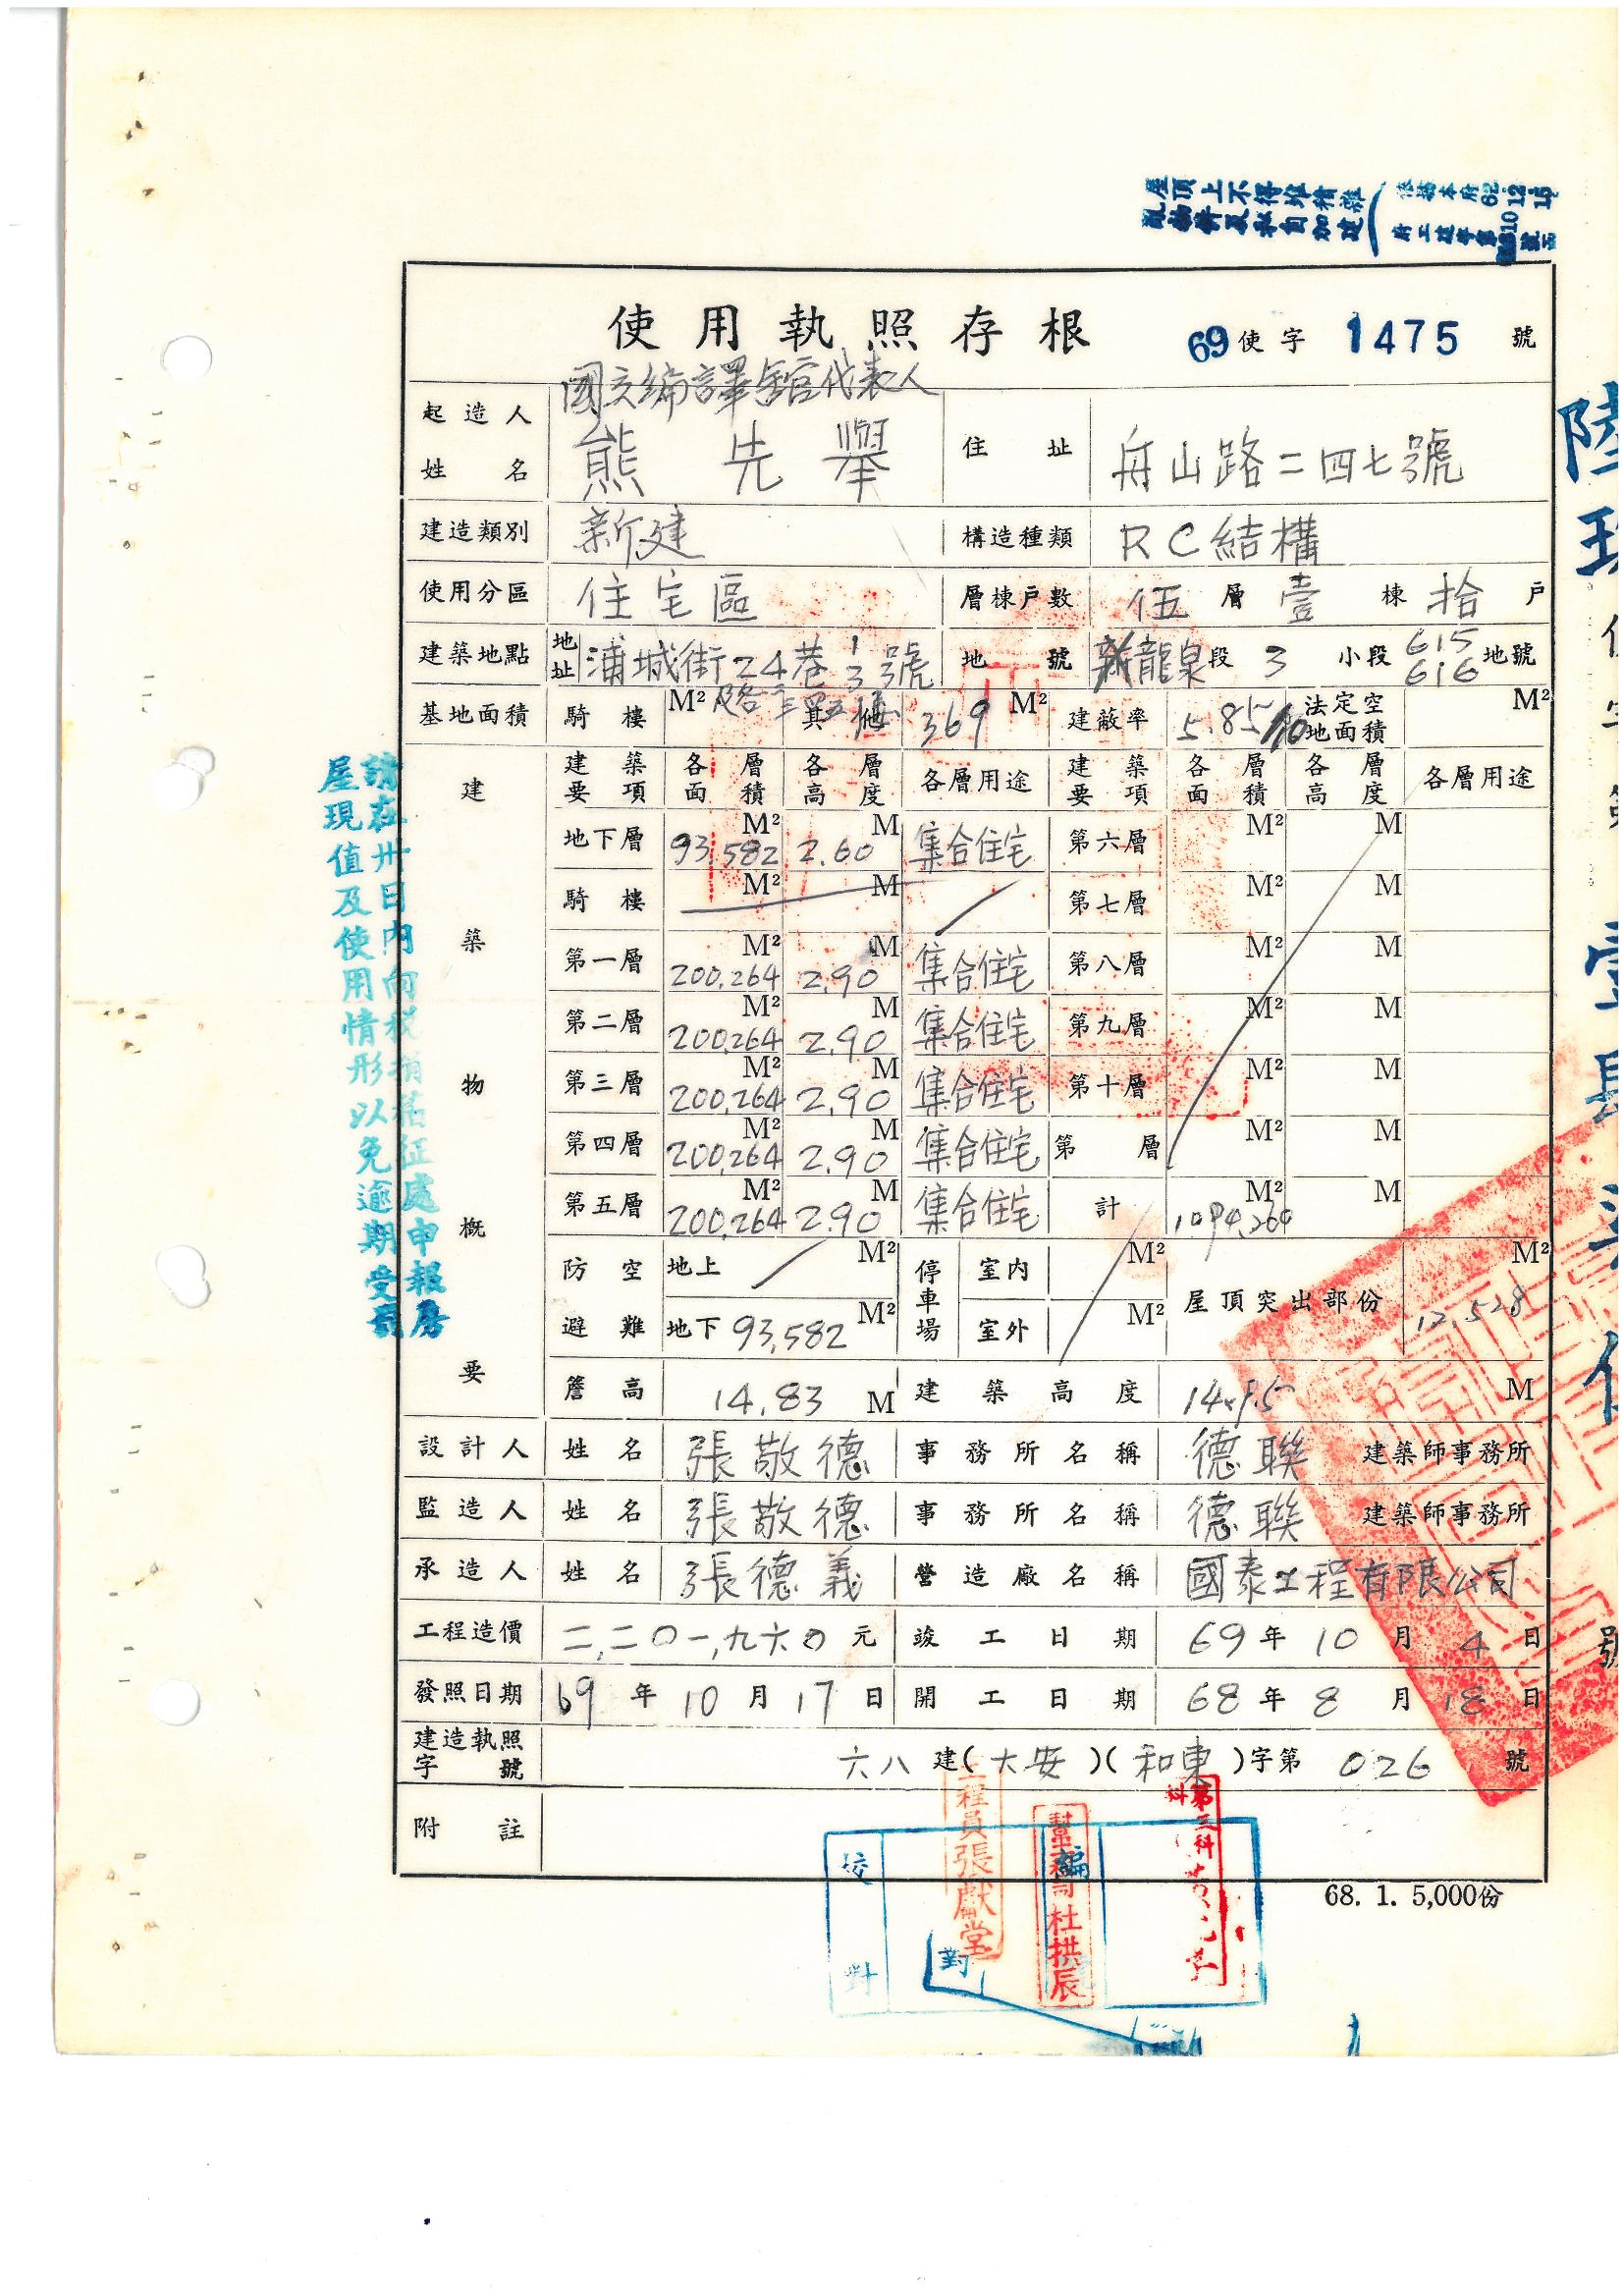 屋頂上不得堆積雜
亂物料及私自加建
使用執照存根 69使字 1475 號
國立編譯館代表人
起造人姓名 熊先舉 住址 舟山路二四七號
建造類別 新建 構造種類 RC結構
使用分區 住宅區 層棟戶數 伍層壹棟拾戶
建築地點 地址 浦城街24巷1 3號 地號 龍泉段 3 小段 615 616 地號
及各二三四五樓
基地面積 騎樓 M² 其他 369 M² 建蔽率 5.85/10 法定空地面積 M²
建築物概要
建築要項 各層面積 各層高度 各層用途 建築要項 各層面積 各層高度 各層用途
地下層 93.582 M² 2.60 M 集合住宅 第六層 M² M
騎樓 M² M 第七層 M² M
第一層 200.264 M² 2.90 M 集合住宅 第八層 M² M
第二層 200.264 M² 2.90 M 集合住宅 第九層 M² M
第三層 200.264 M² 2.90 M 集合住宅 第十層 M² M
第四層 200.264 M² 2.90 M 集合住宅 第 層 M² M
第五層 200.264 M² 2.90 M 集合住宅 計 1094.264 M² M
防空避難 地上 M² 停車場 室內 M² 屋頂突出部份 12.528 M²
地下 93.582 M² 室外 M²
簷高 14.83 M 建築高度 14.95 M
設計人 姓名 張敬德 事務所名稱 德聯 建築師事務所
監造人 姓名 張敬德 事務所名稱 德聯 建築師事務所
承造人 姓名 張德義 營造廠名稱 國泰工程有限公司
工程造價 二,二〇一,九六〇元 竣工日期 69年10月4日
發照日期 69年10月17日 開工日期 68年8月18日
建造執照字號 六八建(大安)(和東)字第 026 號
附註
68. 1. 5,000份
請在卅日內向稅捐稽征處申報房
屋現值及使用情形以免逾期受罰
校對
工程員張獻堂
杜拱辰
第三科
對